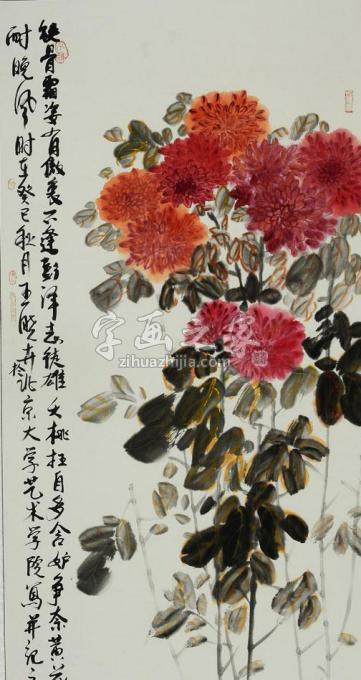 铁骨霜姿有傲衷不逢彭泽志徒雄夭桃枉自多含妒争奈黄花
耐晚风时在癸巳秋月王晓卉於北京大学艺术学院写并记之
字画之家
zihuazhijia.com